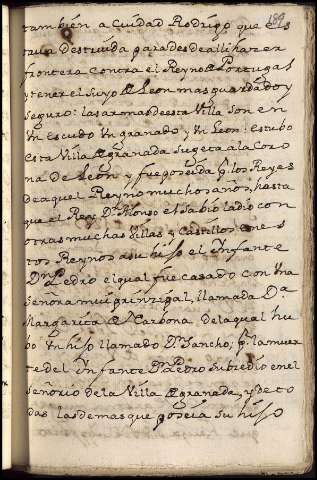 189
también a Cuidad Rodrigo que es
tava destruida para desde alli hazer
frontera contra el Reyno de Portugal
y tener el suyo de Leon mas guardado y
seguro: las armas de esta Villa son en
Un escudo Un granado, y Un Leon: estubo
esta Villa de granada sugeta a la Coro
na de Leon y fue poseida p. los Reyes
de aquel Reyno muchos años, hasta
que el Rey Dn. Alonso el sabio la dio con
otras muchas Villas y Castillos en es
tos Reynos a su hijo el Infante
Dn. Pedro el qual fue casado con Una
Señora mui prinzipal, llamada Da.
Margarita de Narbona, de la qual hu
bo Un hijo llamado Dn. Sancho; p. la muer
te del Infante Dn. Pedro subzedio en el
señorio de la Villa de granada, y de to
das las demas que poseia su hijo